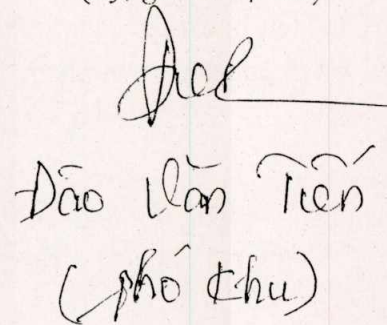 Đào Văn Tiến
(phó khu)